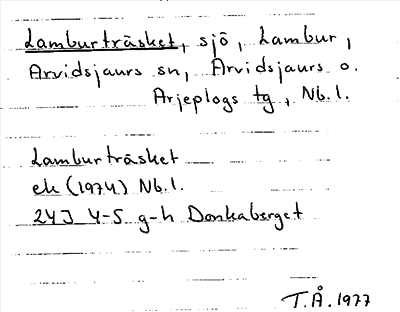 Lamburträsket, sjö, Lambur,
Arvidsjaurs sn, Arvidsjaurs o.
Arjeplogs tg, Nb.l.
Lamburträsket
ek (1974) Nb.l.
24J 4-5 g-h Donkaberget
T.Å.1977